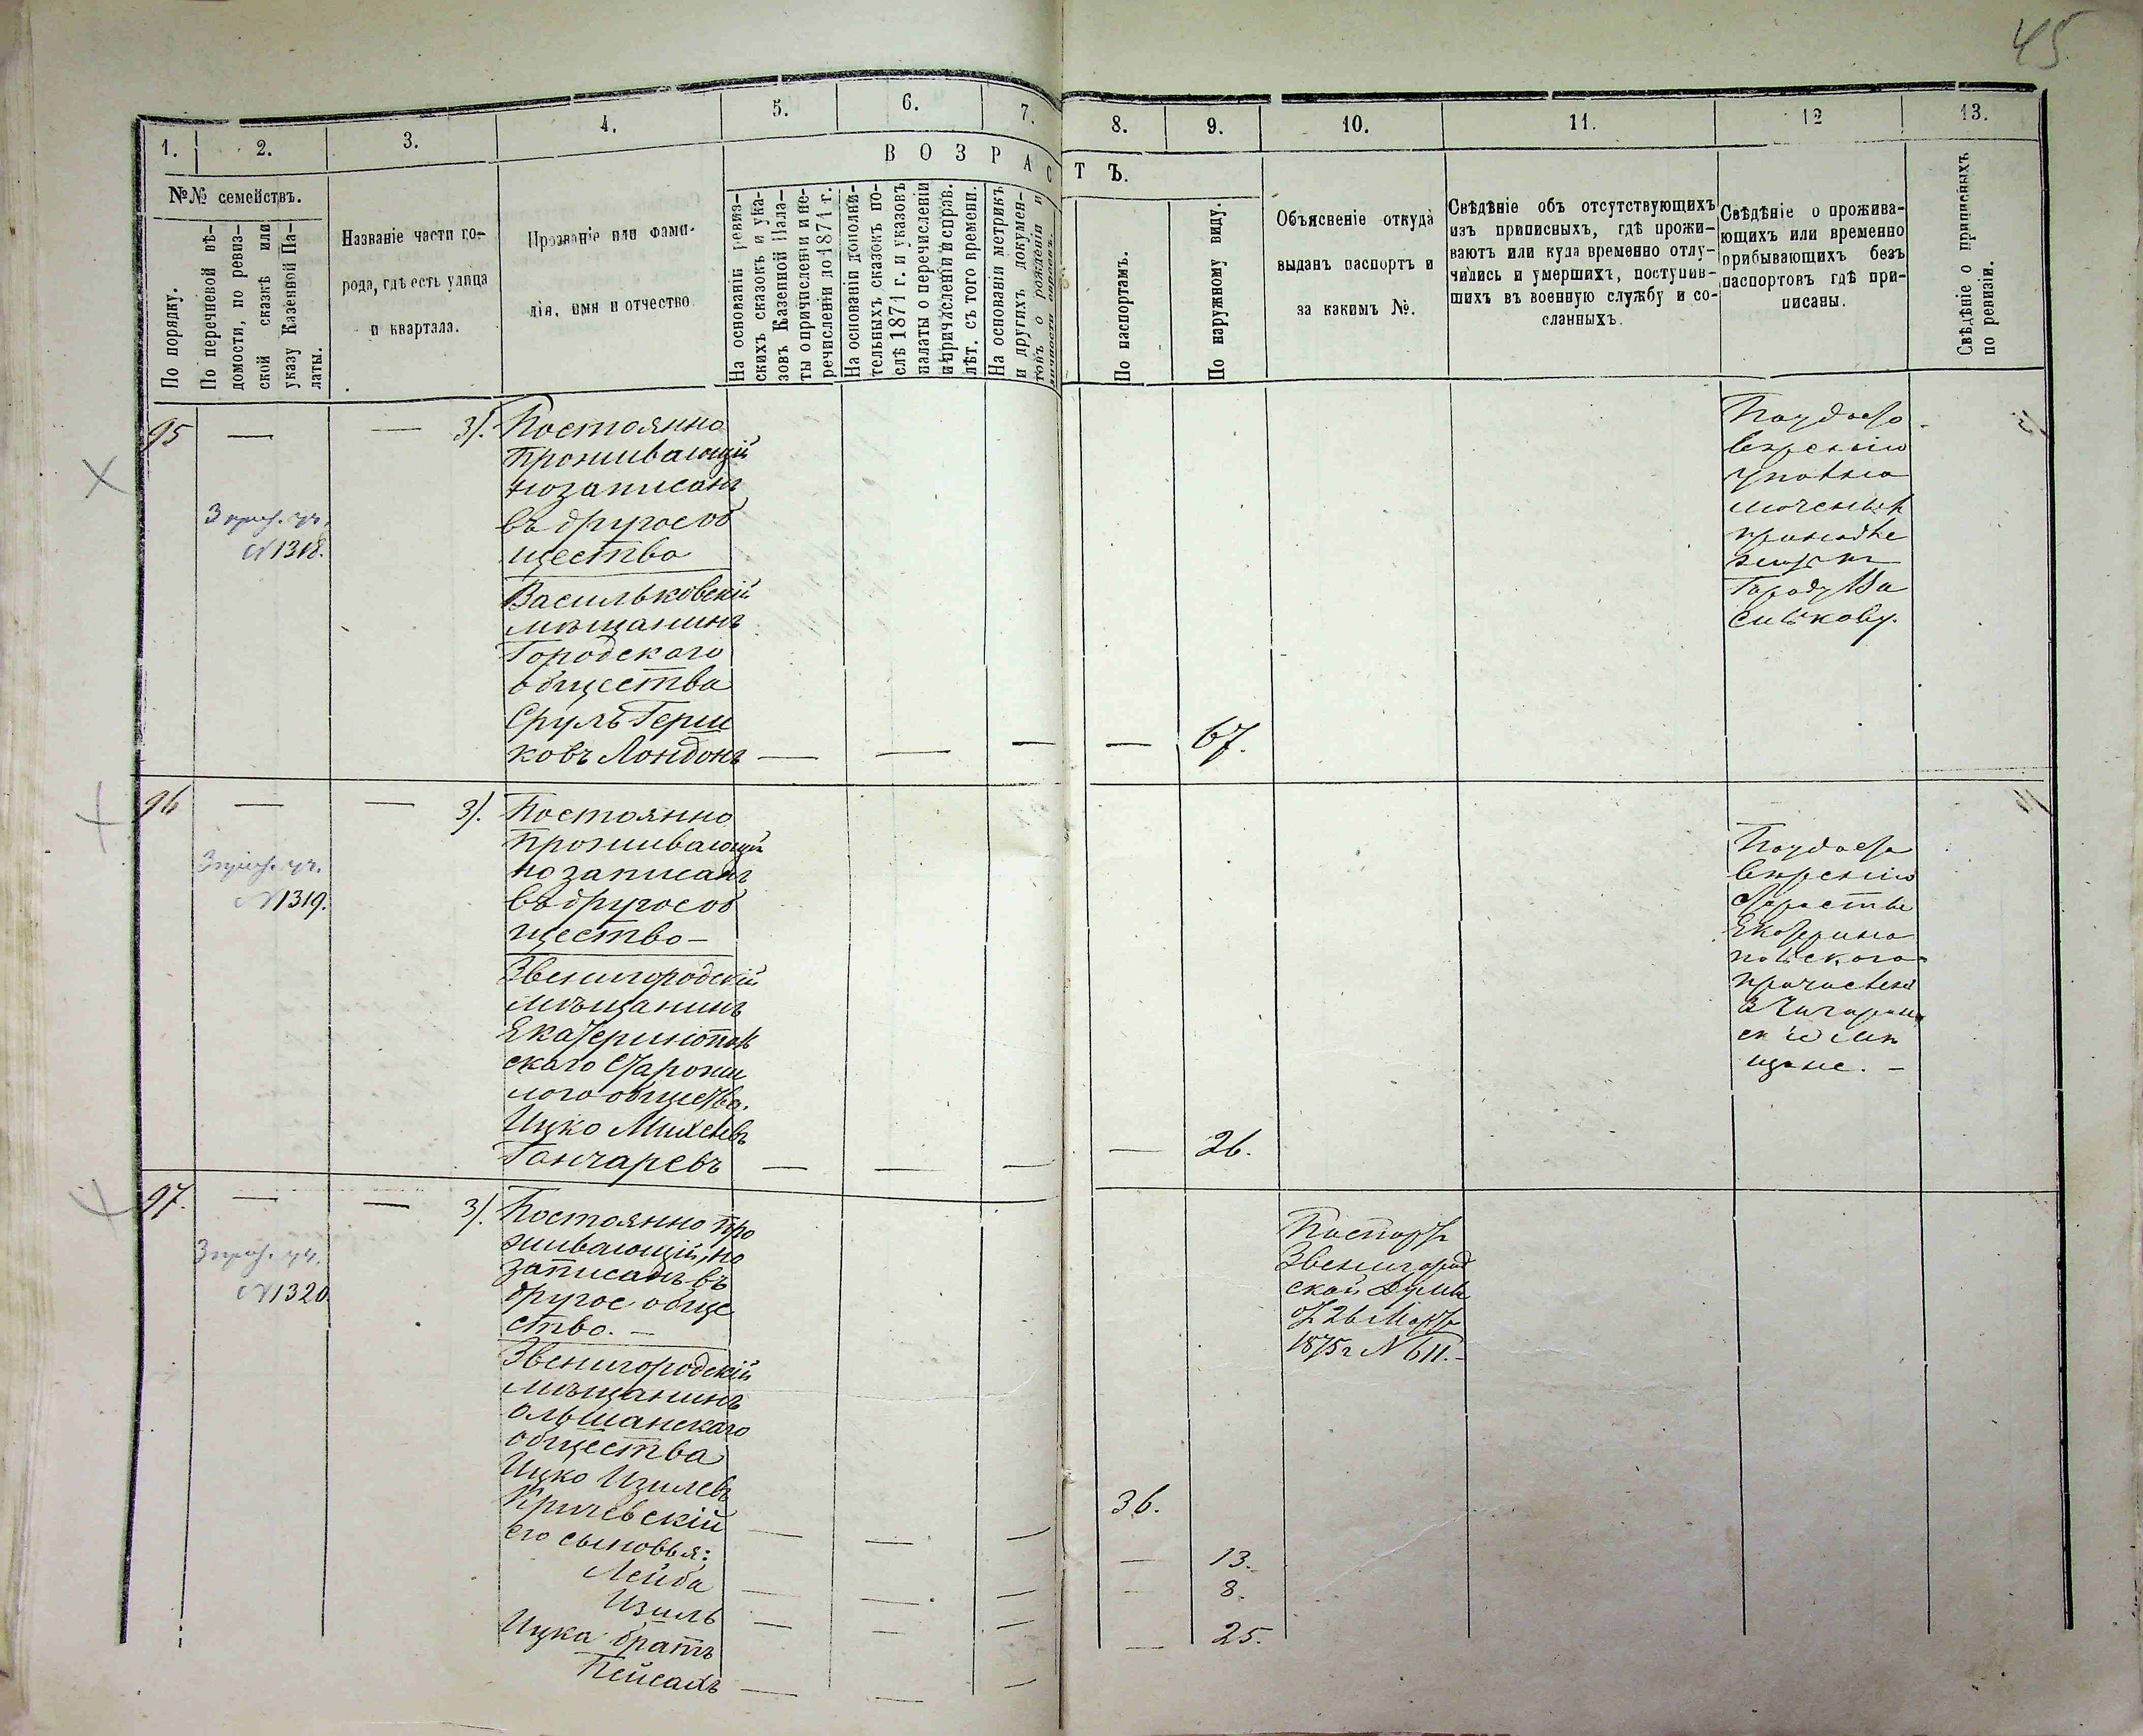 45
1.
2.
3.
4.
5.
6.
7.
8.
9.
10.
11.
12
13.
№№ семействъ.
По порядку.
По перечневой вѣ-
домости, по ревиз-
ской сказкѣ или
указу Казенной Па-
латы.
Названіе части го-
рода, гдѣ есть улица
и квартала.
Прозваніе или фами-
лія, имя и отчество.
ВОЗРАСТЪ.
На основаніи ревиз-
скихъ сказокъ и ука-
зовъ Казенной Пала-
ты опричисленіи и пе-
речисленіи до 1871 г.
На основаніи дополни-
тельныхъ сказокъ по-
слѣ 1871 г. и указовъ
палаты о перечисленіи
и причисленіи и справ.
лѣт. съ того времени.
На основаніи метрикъ
и другихъ докумен-
товъ о рожденіи и
По паспортамъ.
По наружному виду.
Объясненіе откуда
выданъ паспортъ и
за какимъ №.
Свѣдѣніе объ отсутствующихъ
изъ приписныхъ, гдѣ прожи-
ваютъ или куда временно отлу-
чились и умершихъ, поступив-
шихъ въ военную службу и со-
сланныхъ.
Свѣдѣніе о прожива-
ющихъ или временно
прибывающихъ безъ
паспортовъ гдѣ при-
писаны.
Свѣдѣніе о приписныхъ
по ревизіи.
95
№ 1318.
3).
Постоянно
проживающій
но записанъ
въ другое об
щество
Васильковскій
мѣщанинъ
Городского
общества
Сруль Герш
ковъ Лондонъ
67.
По удосто
вѣренію
уполно
моченныхъ
принадле
житъ
Городу Ва
силькову.
96
№ 1319.
3).
Постоянно
проживающій
но записанъ
въ другое об
щество -
Звенигородскій
мѣщанинъ
Екатеринополь
скаго Старожи
лого общества.
Ицко Михелевъ
Гончаревъ
26.
По удосто
вѣренію
Старосты
Екатерино
польскаго
причисленъ
въ Чигирин
скіе мѣ
щане. -
97.
№ 1320.
3).
Постоянно про
живающій, но
записанъ въ
другое обще
ство. -
Звенигородскій
мѣщанинъ
Ольшанскаго
общества
Ицко Изилевъ
Кричевскій
36.
его сыновья:
Лейба
13.
Изиль
8.
Ицка братъ
Пейсахъ
25.
Паспортъ
Звенигород
ской Думы
отъ 26 Марта
1875 г № 611. -